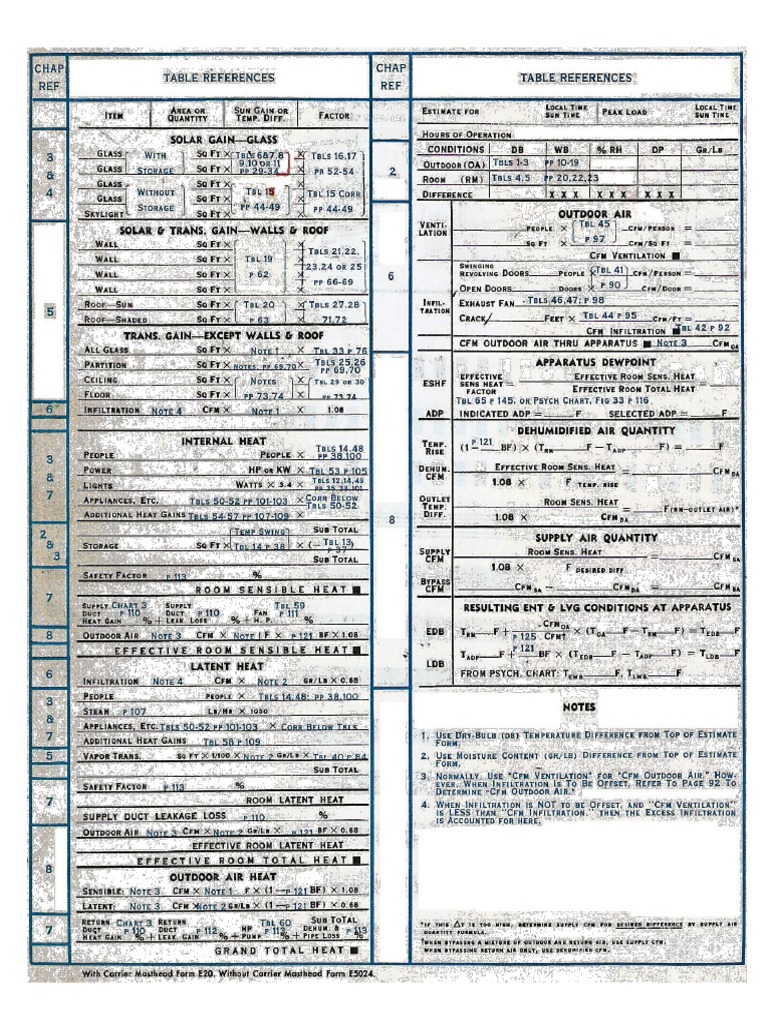 CHAP REF
TABLE REFERENCES
ITEM AREA OR QUANTITY SUN GAIN OR TEMP. DIFF. FACTOR
3 & 4
SOLAR GAIN—GLASS
GLASS WITH SQ FT × TBLS 6&7,8 × TBLS 16,17
GLASS STORAGE SQ FT × 9,10 OR 11 PP 29-34 × PP 52-54
GLASS WITHOUT SQ FT × TBL 15 ×
GLASS STORAGE SQ FT × PP 44-49 × TBL 15 CORR
SKYLIGHT SQ FT × × PP 44-49
5
SOLAR & TRANS. GAIN—WALLS & ROOF
WALL SQ FT × ×
WALL SQ FT × TBL 19 × TBLS 21,22,
WALL SQ FT × P 62 × 23,24 OR 25
WALL SQ FT × × PP 66-69
ROOF—SUN SQ FT × TBL 20 × TBLS 27,28
ROOF—SHADED SQ FT × P 63 × 71,72
TRANS. GAIN—EXCEPT WALLS & ROOF
ALL GLASS SQ FT × NOTE 1 × TBL 33 P 76
PARTITION SQ FT × NOTES, PP 69,70 × TBLS 25,26 PP 69,70
CEILING SQ FT × NOTES × TBL 29 OR 30
FLOOR SQ FT × PP 73,74 × PP 73,74
6
INFILTRATION NOTE 4 CFM × NOTE 1 × 1.08
3 & 7
INTERNAL HEAT
PEOPLE PEOPLE × TBLS 14,48 PP 38,100
POWER HP OR KW × TBL 53 P 105
LIGHTS WATTS × 3.4 × TBLS 12,14,49 PP 35,38,101
APPLIANCES, ETC. TBLS 50-52 PP 101-103 × CORR BELOW TBLS 50-52
ADDITIONAL HEAT GAINS TBLS 54-57 PP 107-109 ×
SUB TOTAL
2 & 3
STORAGE SQ FT × TEMP SWING TBL 14 P 38 × (— TBL 13) P 37
SUB TOTAL
7
SAFETY FACTOR P 113 %
ROOM SENSIBLE HEAT ■
SUPPLY DUCT HEAT GAIN CHART 3 P 110 % + SUPPLY DUCT LEAK. LOSS P 110 % + FAN H. P. TBL 59 P 111 %
8
OUTDOOR AIR NOTE 3 CFM × NOTE 1 F × P 121 BF × 1.08
EFFECTIVE ROOM SENSIBLE HEAT ■
6
LATENT HEAT
INFILTRATION NOTE 4 CFM × NOTE 2 GR/LB × 0.68
3 & 7
PEOPLE PEOPLE × TBLS 14,48; PP 38,100
STEAM P 107 LB/HR × 1050
APPLIANCES, ETC. TBLS 50-52 PP 101-103 × CORR BELOW TBLS
ADDITIONAL HEAT GAINS TBL 58 P 109
5
VAPOR TRANS. SQ FT × 1/100 × NOTE 2 GR/LB × TBL 40 P 84
SUB TOTAL
7
SAFETY FACTOR P 113 %
ROOM LATENT HEAT
SUPPLY DUCT LEAKAGE LOSS P 110 %
8
OUTDOOR AIR NOTE 3 CFM × NOTE 2 GR/LB × P 121 BF × 0.68
EFFECTIVE ROOM LATENT HEAT
EFFECTIVE ROOM TOTAL HEAT ■
OUTDOOR AIR HEAT
SENSIBLE: NOTE 3 CFM × NOTE 1 F × (1 — P 121 BF) × 1.08
LATENT: NOTE 3 CFM × NOTE 2 GR/LB × (1 — P 121 BF) × 0.68
7
RETURN DUCT HEAT GAIN CHART 3 P 110 % + RETURN DUCT LEAK. GAIN P 112 % + HP PUMP TBL 60 P 113 % + DEHUM. & PIPE LOSS P 113 % SUB TOTAL
GRAND TOTAL HEAT ■
With Carrier Masthead Form E20. Without Carrier Masthead Form E5024.
CHAP REF
TABLE REFERENCES
ESTIMATE FOR LOCAL TIME SUN TIME PEAK LOAD LOCAL TIME SUN TIME
HOURS OF OPERATION
2
CONDITIONS DB WB % RH DP GR/LB
OUTDOOR (OA) TBLS 1-3 PP 10-19
ROOM (RM) TBLS 4,5 PP 20,22,23
DIFFERENCE X X X X X X X X X
6
OUTDOOR AIR
VENTILATION PEOPLE × TBL 45 CFM/PERSON =
SQ FT × P 97 CFM/SQ FT =
CFM VENTILATION ■
INFILTRATION
SWINGING REVOLVING DOORS PEOPLE × TBL 41 CFM/PERSON =
OPEN DOORS DOORS × P 90 CFM/DOOR =
EXHAUST FAN TBLS 46,47; P 98
CRACK FEET × TBL 44 P 95 CFM/FT =
CFM INFILTRATION ■ TBL 42 P 92
CFM OUTDOOR AIR THRU APPARATUS ■ NOTE 3 CFMOA
8
APPARATUS DEWPOINT
ESHF EFFECTIVE SENS HEAT FACTOR = EFFECTIVE ROOM SENS. HEAT
EFFECTIVE ROOM TOTAL HEAT
TBL 65 P 145, OR PSYCH CHART, FIG 33 P 116
ADP INDICATED ADP = F SELECTED ADP = F
DEHUMIDIFIED AIR QUANTITY
TEMP. RISE (1 — P 121 BF) × (TRM F — TADP F) = F
DEHUM. CFM EFFECTIVE ROOM SENS. HEAT = CFMDA
1.08 × F TEMP. RISE
OUTLET TEMP. DIFF. ROOM SENS. HEAT = F(RM—OUTLET AIR)*
1.08 × CFMDA
SUPPLY AIR QUANTITY
SUPPLY CFM ROOM SENS. HEAT = CFMSA
1.08 × F DESIRED DIFF
BYPASS CFM CFMSA — CFMDA = CFMBA
RESULTING ENT & LVG CONDITIONS AT APPARATUS
EDB TRM F + CFMOA P 125 CFM† × (TOA F — TRM F) = TEDB F
LDB TADP F + P 121 BF × (TEDB F — TADP F) = TLDB F
FROM PSYCH. CHART: TEWB F, TLWB F
NOTES
1. USE DRY-BULB (DB) TEMPERATURE DIFFERENCE FROM TOP OF ESTIMATE
FORM.
2. USE MOISTURE CONTENT (GR/LB) DIFFERENCE FROM TOP OF ESTIMATE
FORM.
3. NORMALLY, USE "CFM VENTILATION" FOR "CFM OUTDOOR AIR." HOW-
EVER, WHEN INFILTRATION IS TO BE OFFSET, REFER TO PAGE 92 TO
DETERMINE "CFM OUTDOOR AIR."
4. WHEN INFILTRATION IS NOT TO BE OFFSET, AND "CFM VENTILATION"
IS LESS THAN "CFM INFILTRATION," THEN THE EXCESS INFILTRATION
IS ACCOUNTED FOR HERE.
*IF THIS ΔT IS TOO HIGH, DETERMINE SUPPLY CFM FOR DESIRED DIFFERENCE BY SUPPLY AIR
QUANTITY FORMULA.
†WHEN BYPASSING A MIXTURE OF OUTDOOR AND RETURN AIR, USE SUPPLY CFM.
WHEN BYPASSING RETURN AIR ONLY, USE DEHUMIDIFIED CFM.